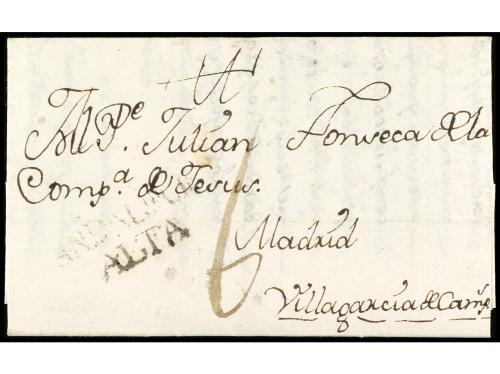 Al P.e Julian Fonseca de la
Comp.a de Jesus.
ANDALUCIA
ALTA
6
Madrid
Villagarcia de Camp.s